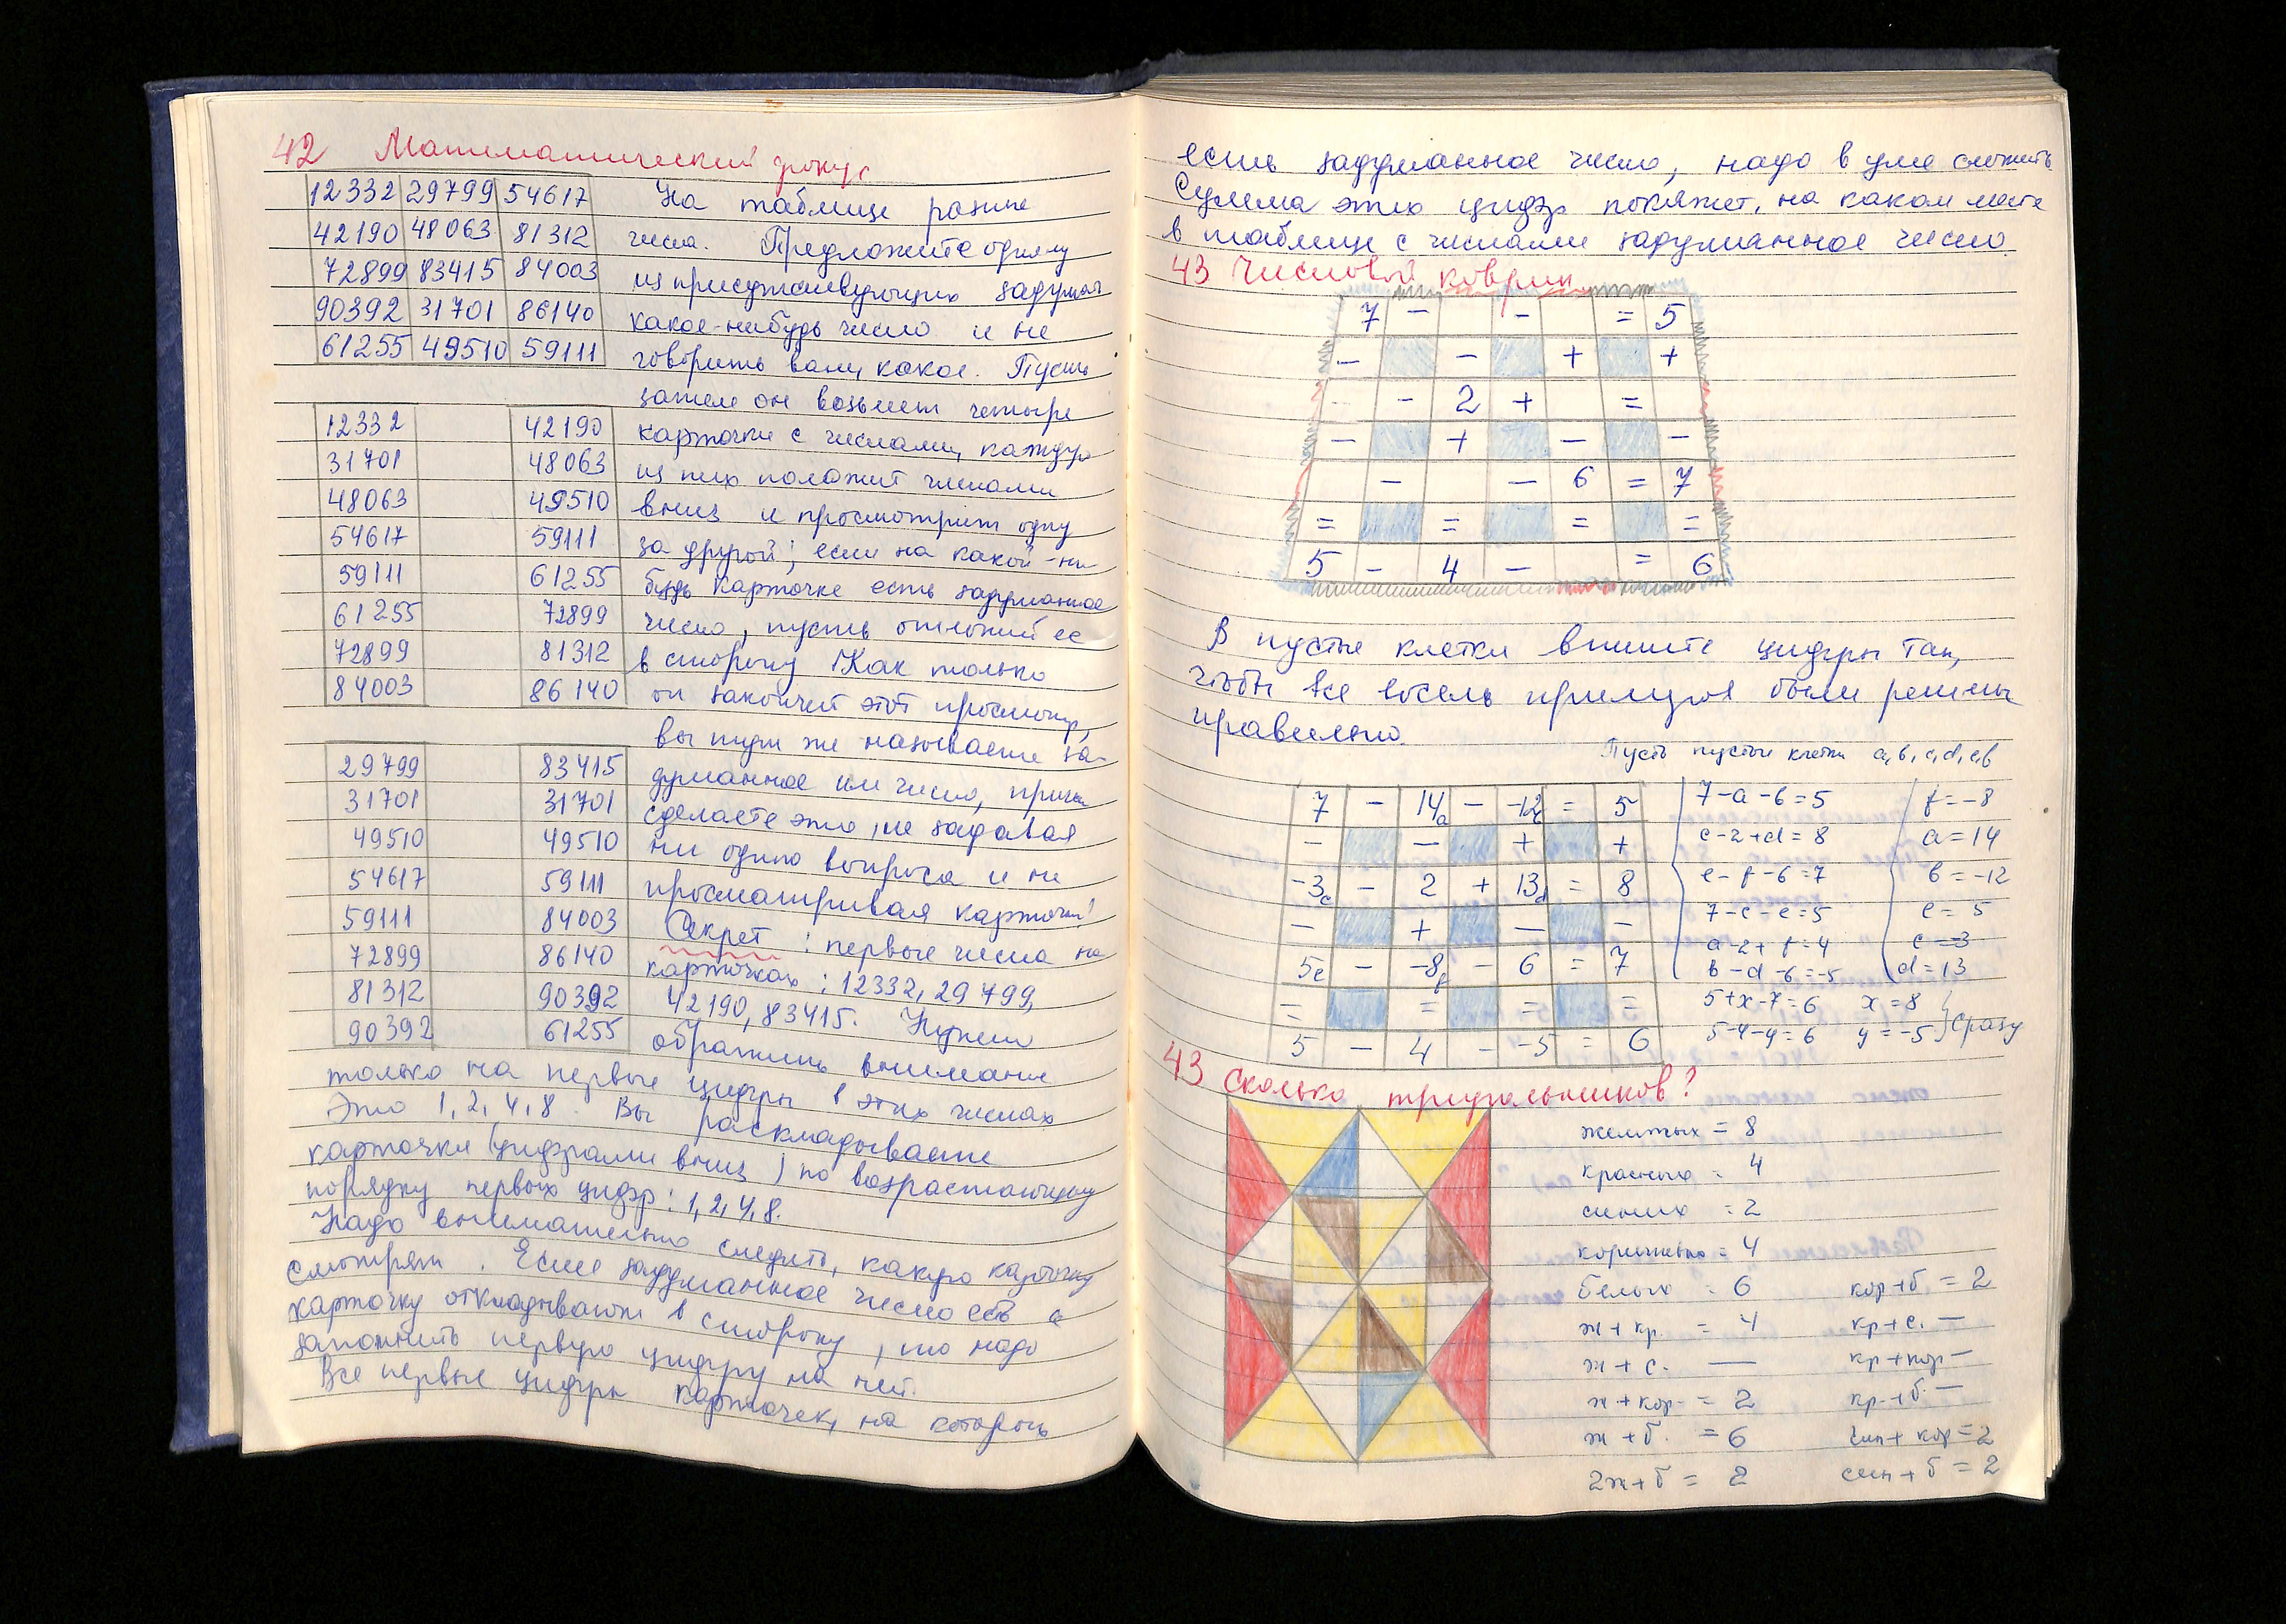 42 Математический фокус
12332 29799 54617
42190 48063 81312
72899 83415 84003
90392 31701 86140
61255 49510 59111
На таблице разные
числа. Предложите одному
из присутствующих задумать
какое-нибудь число и не
говорить вам, какое. Пусть
затем он возьмет четыре
карточки с числами, каждую
из них положит числами
вниз и просмотрит одну
за другой; если на какой-ни
будь карточке есть задуманное
число, пусть отложит ее
в сторону. Как только
он закончит этот просмотр,
вы тут же называете за-
думанное им число, причем
сделаете это, не задавая
ни одного вопроса и не
просматривая карточки!
12332
31701
48063
54617
59111
61255
72899
84003
42190
48063
49510
59111
61255
72899
81312
86140
29799
31701
49510
54617
59111
72899
81312
90392
83415
31701
49510
59111
84003
86140
90392
61255
Секрет: первые числа на
карточках: 12332, 29799,
42190, 83415. Нужно
обратить внимание
только на первые цифры в этих числах
Это 1, 2, 4, 8. Вы раскладываете
карточки (цифрами вниз) по возрастающему
порядку первых цифр: 1, 2, 4, 8.
Надо внимательно следить, какую карточку
смотрят. Если задуманное число есть и
карточку откладывают в сторону, то надо
запомнить первую цифру на ней.
Все первые цифры карточек, на которых
есть задуманное число, надо в уме сложить
Сумма этих цифр покажет, на каком месте
в таблице с числами задуманное число
43 Числовой коврик
7 - - = 5
- - + +
- 2 + =
- + - -
- - 6 = 7
= = = =
5 - 4 - = 6
В пустые клетки впишите цифры так,
чтобы все восемь примеров были решены
правильно.
Пусть пустые клетки a, b, c, d, e, f
7 - 14a - -12b = 5
- - + +
-3c - 2 + 13d = 8
- + - -
5e - -8f - 6 = 7
= = = =
5 - 4 - -5 = 6
7-a-b=5
c-2+d=8
e-f-6=7
7-c-e=5
a-2+f=4
b-d-6=-5
f=-8
a=14
b=-12
e=5
c=-3
d=13
5+x-7=6 x=8
5-4-y=6 y=-5 } сразу
43 Сколько треугольников?
желтых = 8
красных = 4
синих = 2
коричневых = 4
белых = 6 кор+б. = 2
ж + кр. = 4 кр+с. —
ж + с. — кр+кор —
ж + кор. = 2 кр.+б. —
ж + б. = 6 син+ кор=2
2ж+б = 2 син+б = 2